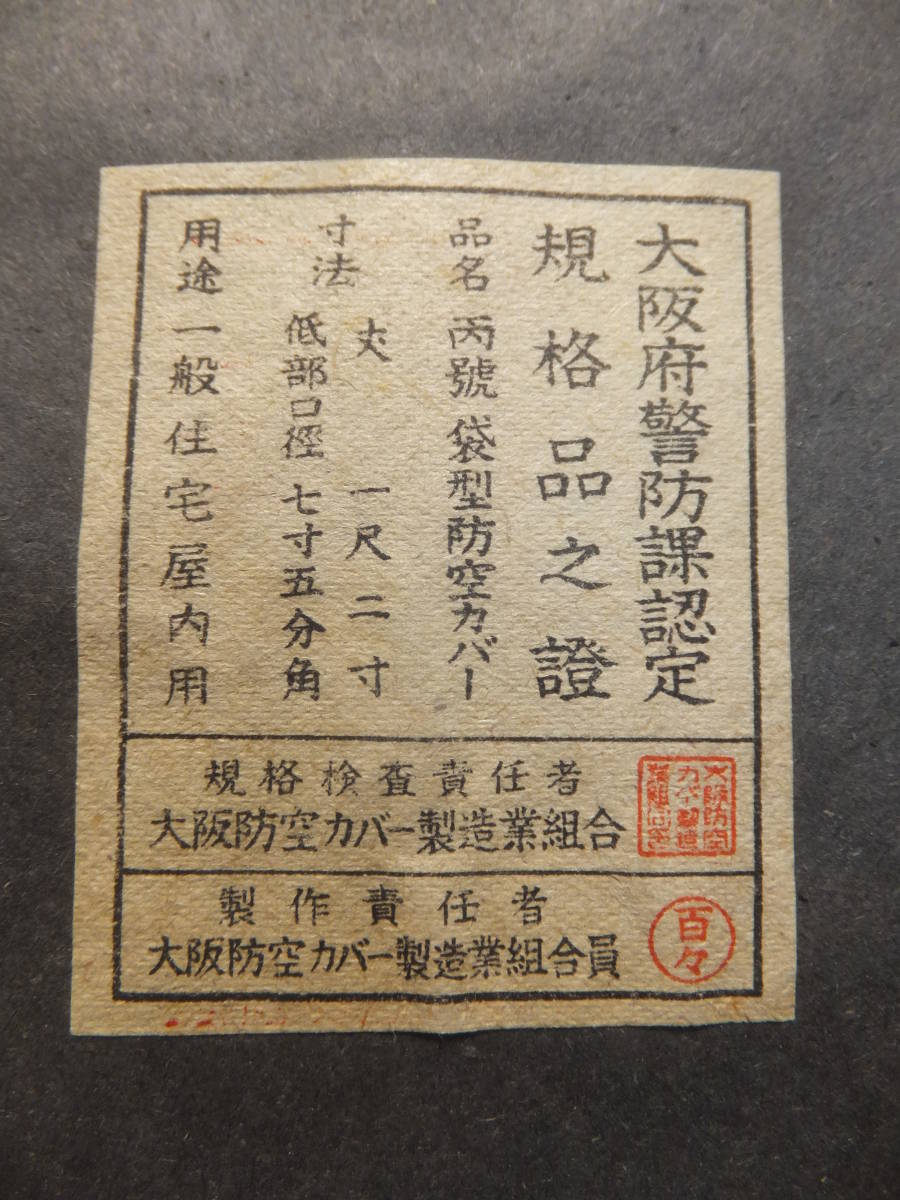 大阪府警防課認定
規格品之證
品名 丙號袋型防空カバー
寸法 丈 一尺二寸
低部口徑 七寸五分角
用途 一般住宅屋内用
規格検査責任者
大阪防空カバー製造業組合
製作責任者
大阪防空カバー製造業組合員
百々